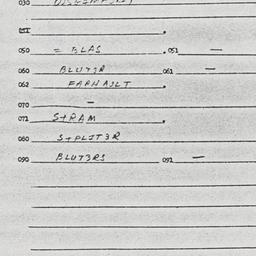 030
031 .
050 = BLAS . 051 —
060 BLUT3R 061 —
062 FARHAULT .
070 —
072 S+RAM .
080 S+PLIT3R
090 BLUT3RS 092 —